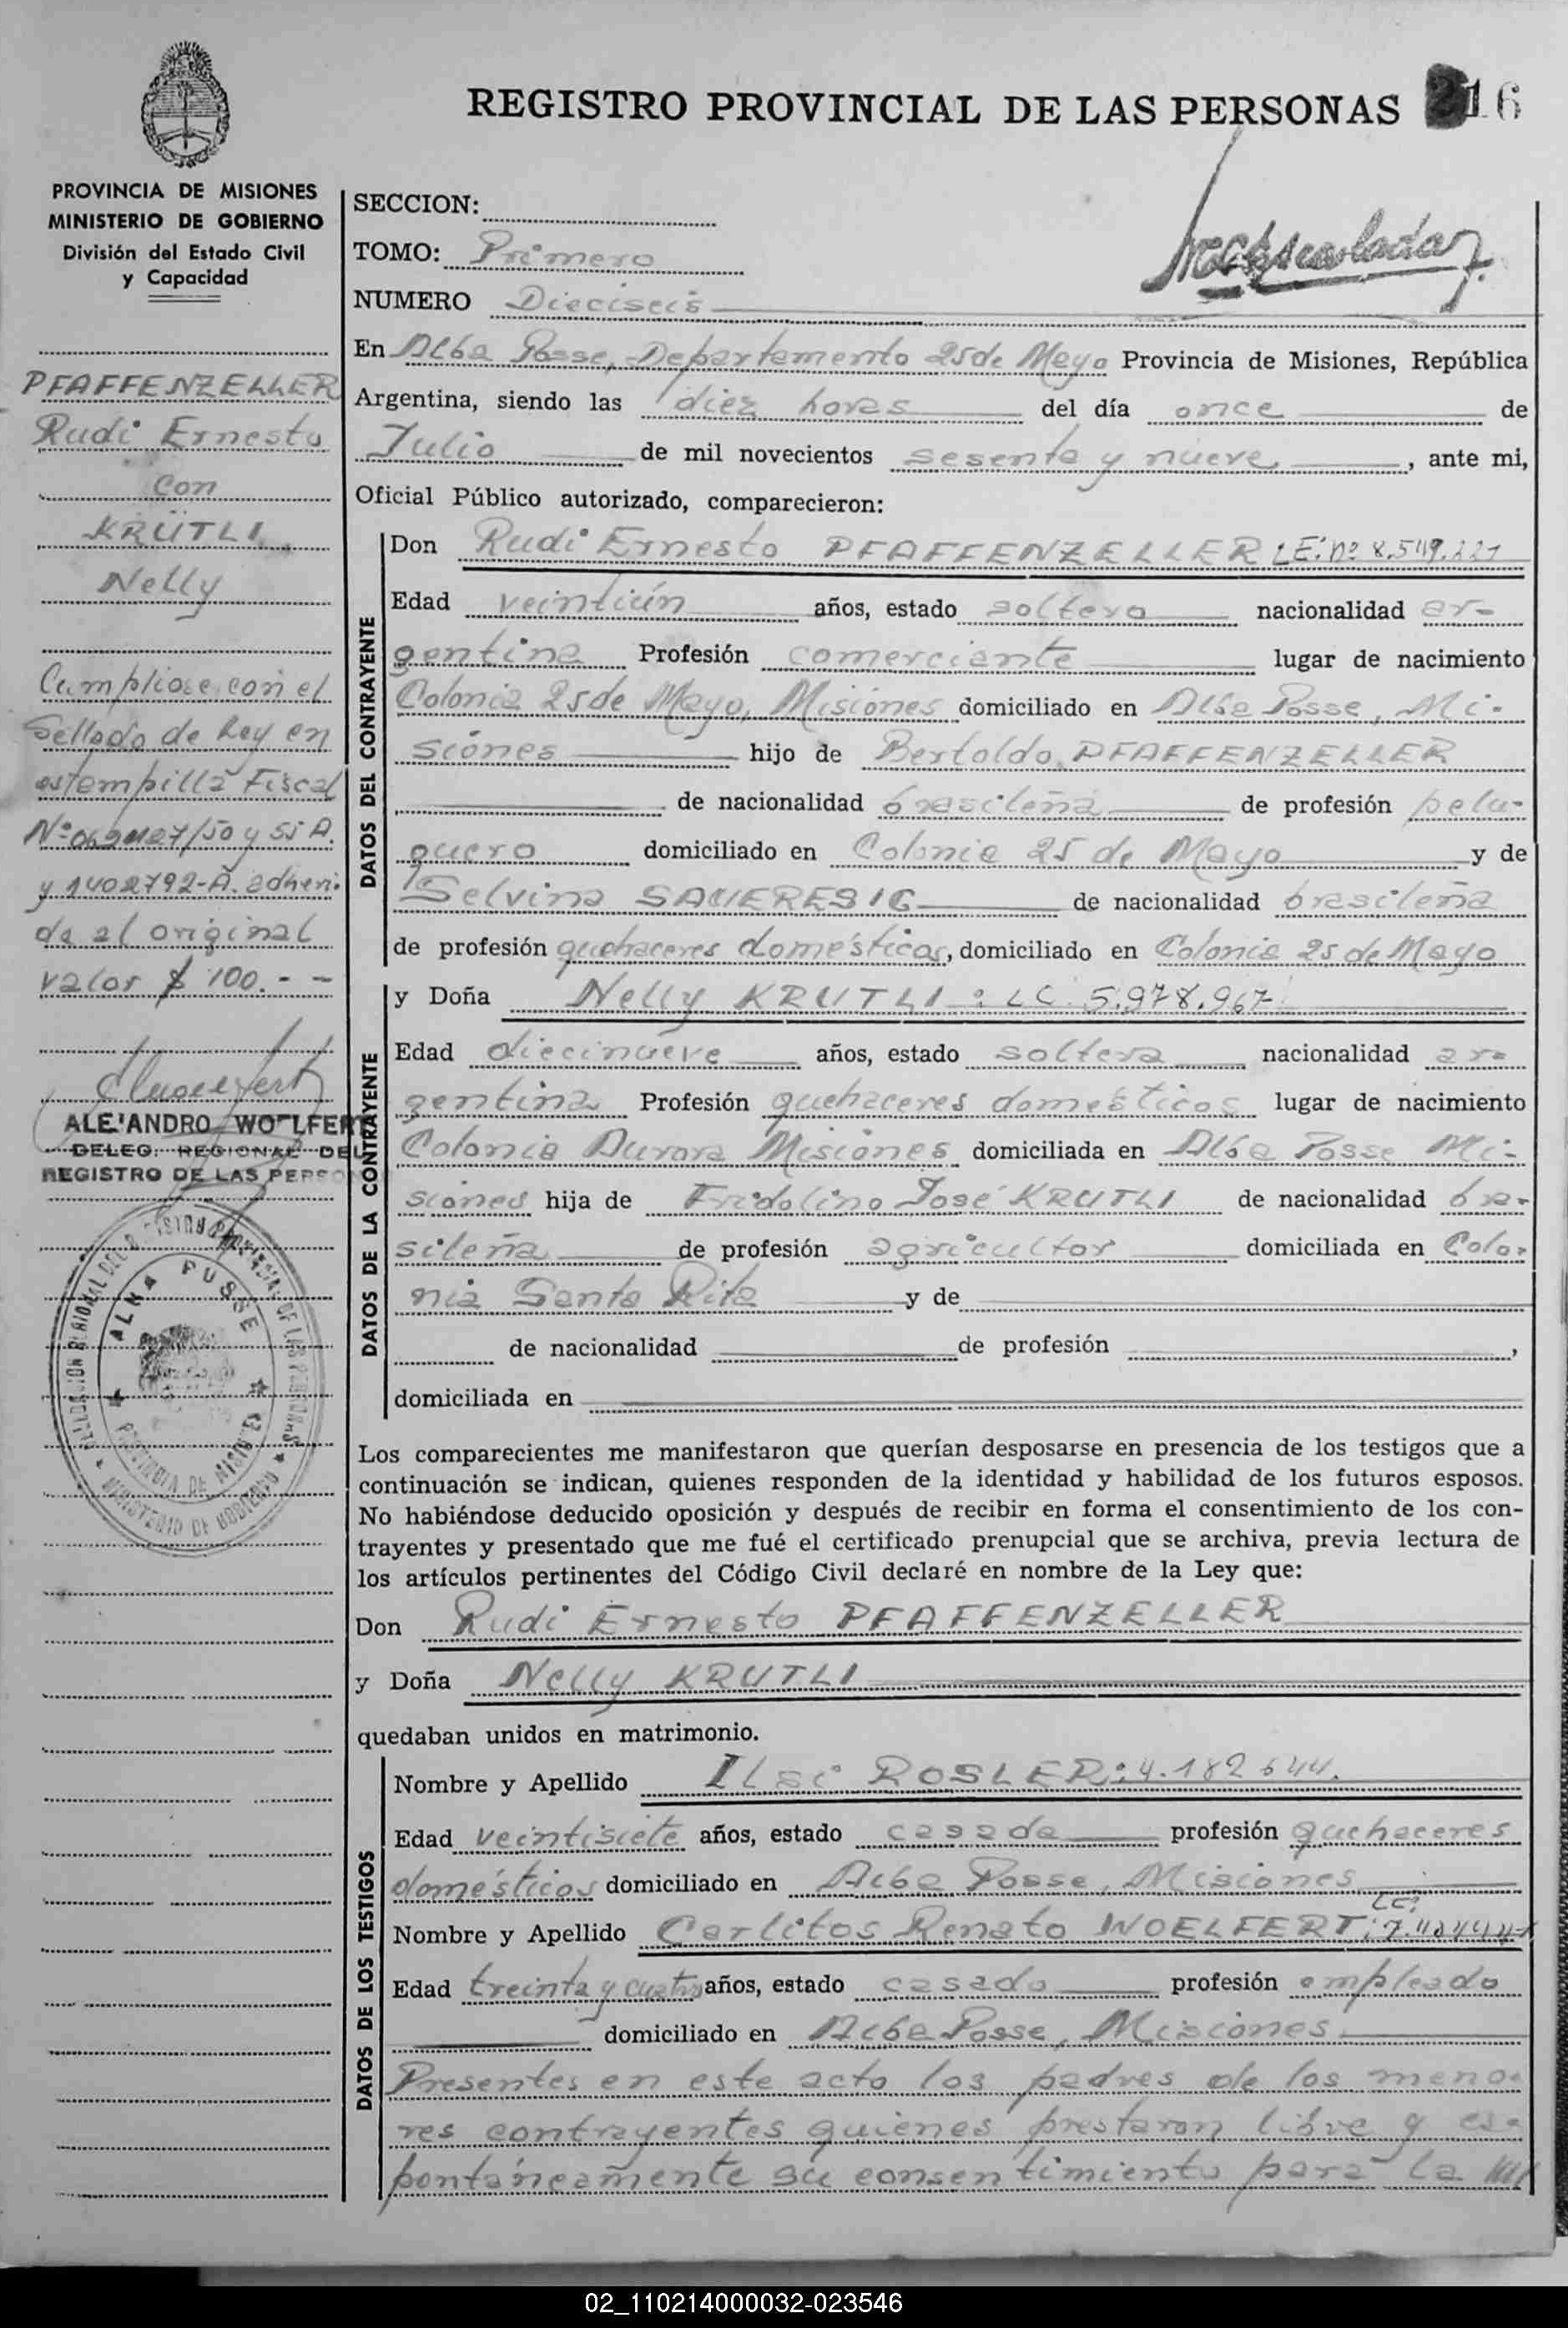 REGISTRO PROVINCIAL DE LAS PERSONAS 216
PROVINCIA DE MISIONES
MINISTERIO DE GOBIERNO
División del Estado Civil
y Capacidad
PFAFFENZELLER
Rudi Ernesto
con
KRÜTLI
Nelly
Cumpliose con el
Sellado de Ley en
estempilla Fiscal
y 1402792-A. adheri-
da al original
valor $ 100.- -
ALEJANDRO WOELFERT
DELEG. REGIONAL DEL
REGISTRO DE LAS PERSO
ALBA POSSE
PROVINCIA DE MISIONES
MINISTERIO DE GOBIERNO
SECCION:
TOMO: Primero
NUMERO Dieciseis
En Alba Posse, Departamento 25 de Mayo Provincia de Misiones, República
Argentina, siendo las diez horas del día once de
Julio de mil novecientos sesenta y nueve, ante mi,
Oficial Público autorizado, comparecieron:
DATOS DEL CONTRAYENTE
Don Rudi Ernesto PFAFFENZELLER LE: nº
Edad veintiún años, estado soltero nacionalidad ar-
gentina Profesión comerciante lugar de nacimiento
Colonia 25 de Mayo, Misiones domiciliado en Alba Posse, Mi-
siones hijo de Bertoldo PFAFFENZELLER
de nacionalidad brasileña de profesión pelu-
quero domiciliado en Colonia 25 de Mayo y de
Selvina SAUERESIG de nacionalidad brasileña
de profesión quehaceres domésticos, domiciliado en Colonia 25 de Mayo
DATOS DE LA CONTRAYENTE
y Doña Nelly KRUTLI: LC 5.978.967
Edad diecinueve años, estado soltera nacionalidad ar-
gentina Profesión quehaceres domésticos lugar de nacimiento
Colonia Aurora Misiones domiciliada en Alba Posse Mi-
siones hija de Fridolino José KRUTLI de nacionalidad bra-
sileña de profesión agricultor domiciliada en Colo-
nia Santa Rita y de
de nacionalidad de profesión ,
domiciliada en
Los comparecientes me manifestaron que querían desposarse en presencia de los testigos que a
continuación se indican, quienes responden de la identidad y habilidad de los futuros esposos.
No habiéndose deducido oposición y después de recibir en forma el consentimiento de los con-
trayentes y presentado que me fué el certificado prenupcial que se archiva, previa lectura de
los artículos pertinentes del Código Civil declaré en nombre de la Ley que:
Don Rudi Ernesto PFAFFENZELLER
y Doña Nelly KRUTLI
quedaban unidos en matrimonio.
DATOS DE LOS TESTIGOS
Nombre y Apellido Ilsi ROSLER: 4.182.644.
Edad veintisiete años, estado casada profesión quehaceres
domésticos domiciliado en Alba Posse, Misiones
Nombre y Apellido Carlitos Renato WOELFERT:
Edad treinta y cuatro años, estado casado profesión empleado
domiciliado en Alba Posse, Misiones
Presentes en este acto los padres de los meno-
res contrayentes quienes prestaron libre y es-
pontáneamente su consentimiento para la
02_110214000032-023546